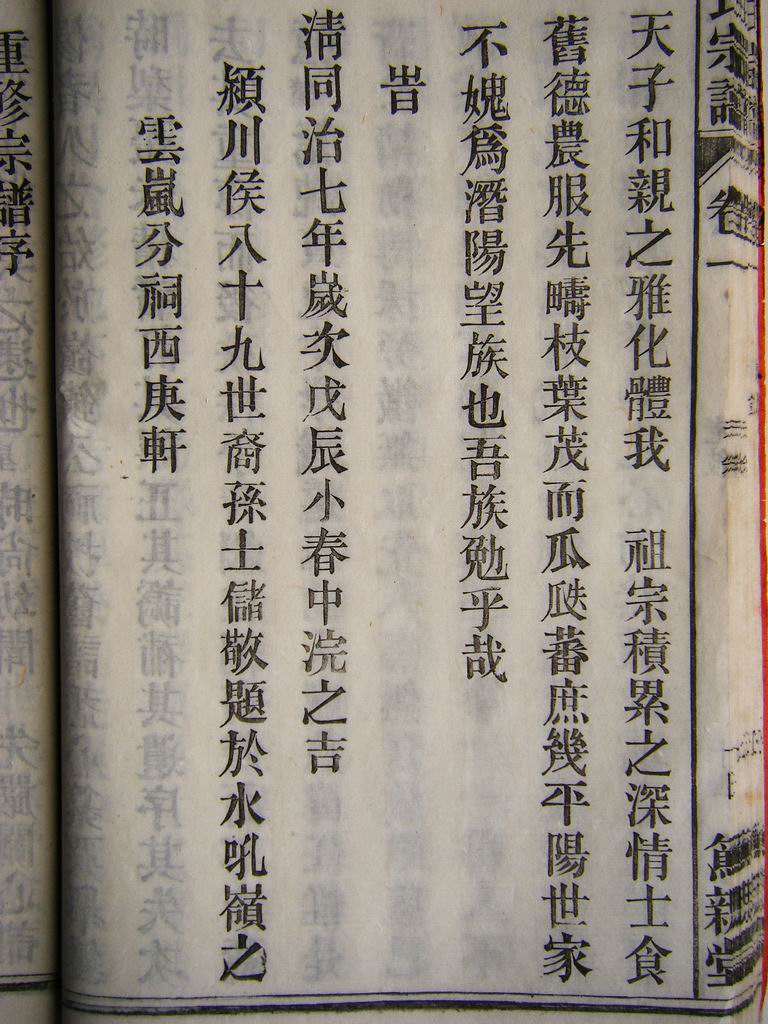 宗譜 卷一 篤親堂
天子和親之雅化體我 祖宗積累之深情士食
舊德農服先疇枝葉茂而瓜瓞蕃庶幾平陽世家
不媿爲潛陽望族也吾族勉乎哉
旹
清同治七年歲次戊辰小春中浣之吉
潁川侯八十九世裔孫士儲敬題於水吼嶺之
雲嵐分祠西庚軒
重修宗譜序